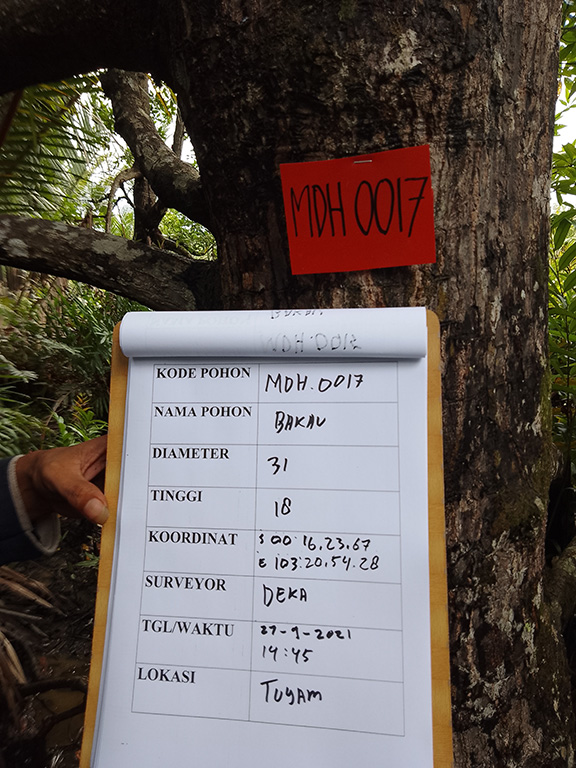 MDH 0017
KODE POHON MDH.0017
NAMA POHON BAKAU
DIAMETER 31
TINGGI 18
KOORDINAT S 00.16.23.67
E 103.20.54.28
SURVEYOR DEKA
TGL/WAKTU 27-9-2021
14:45
LOKASI TUGAM